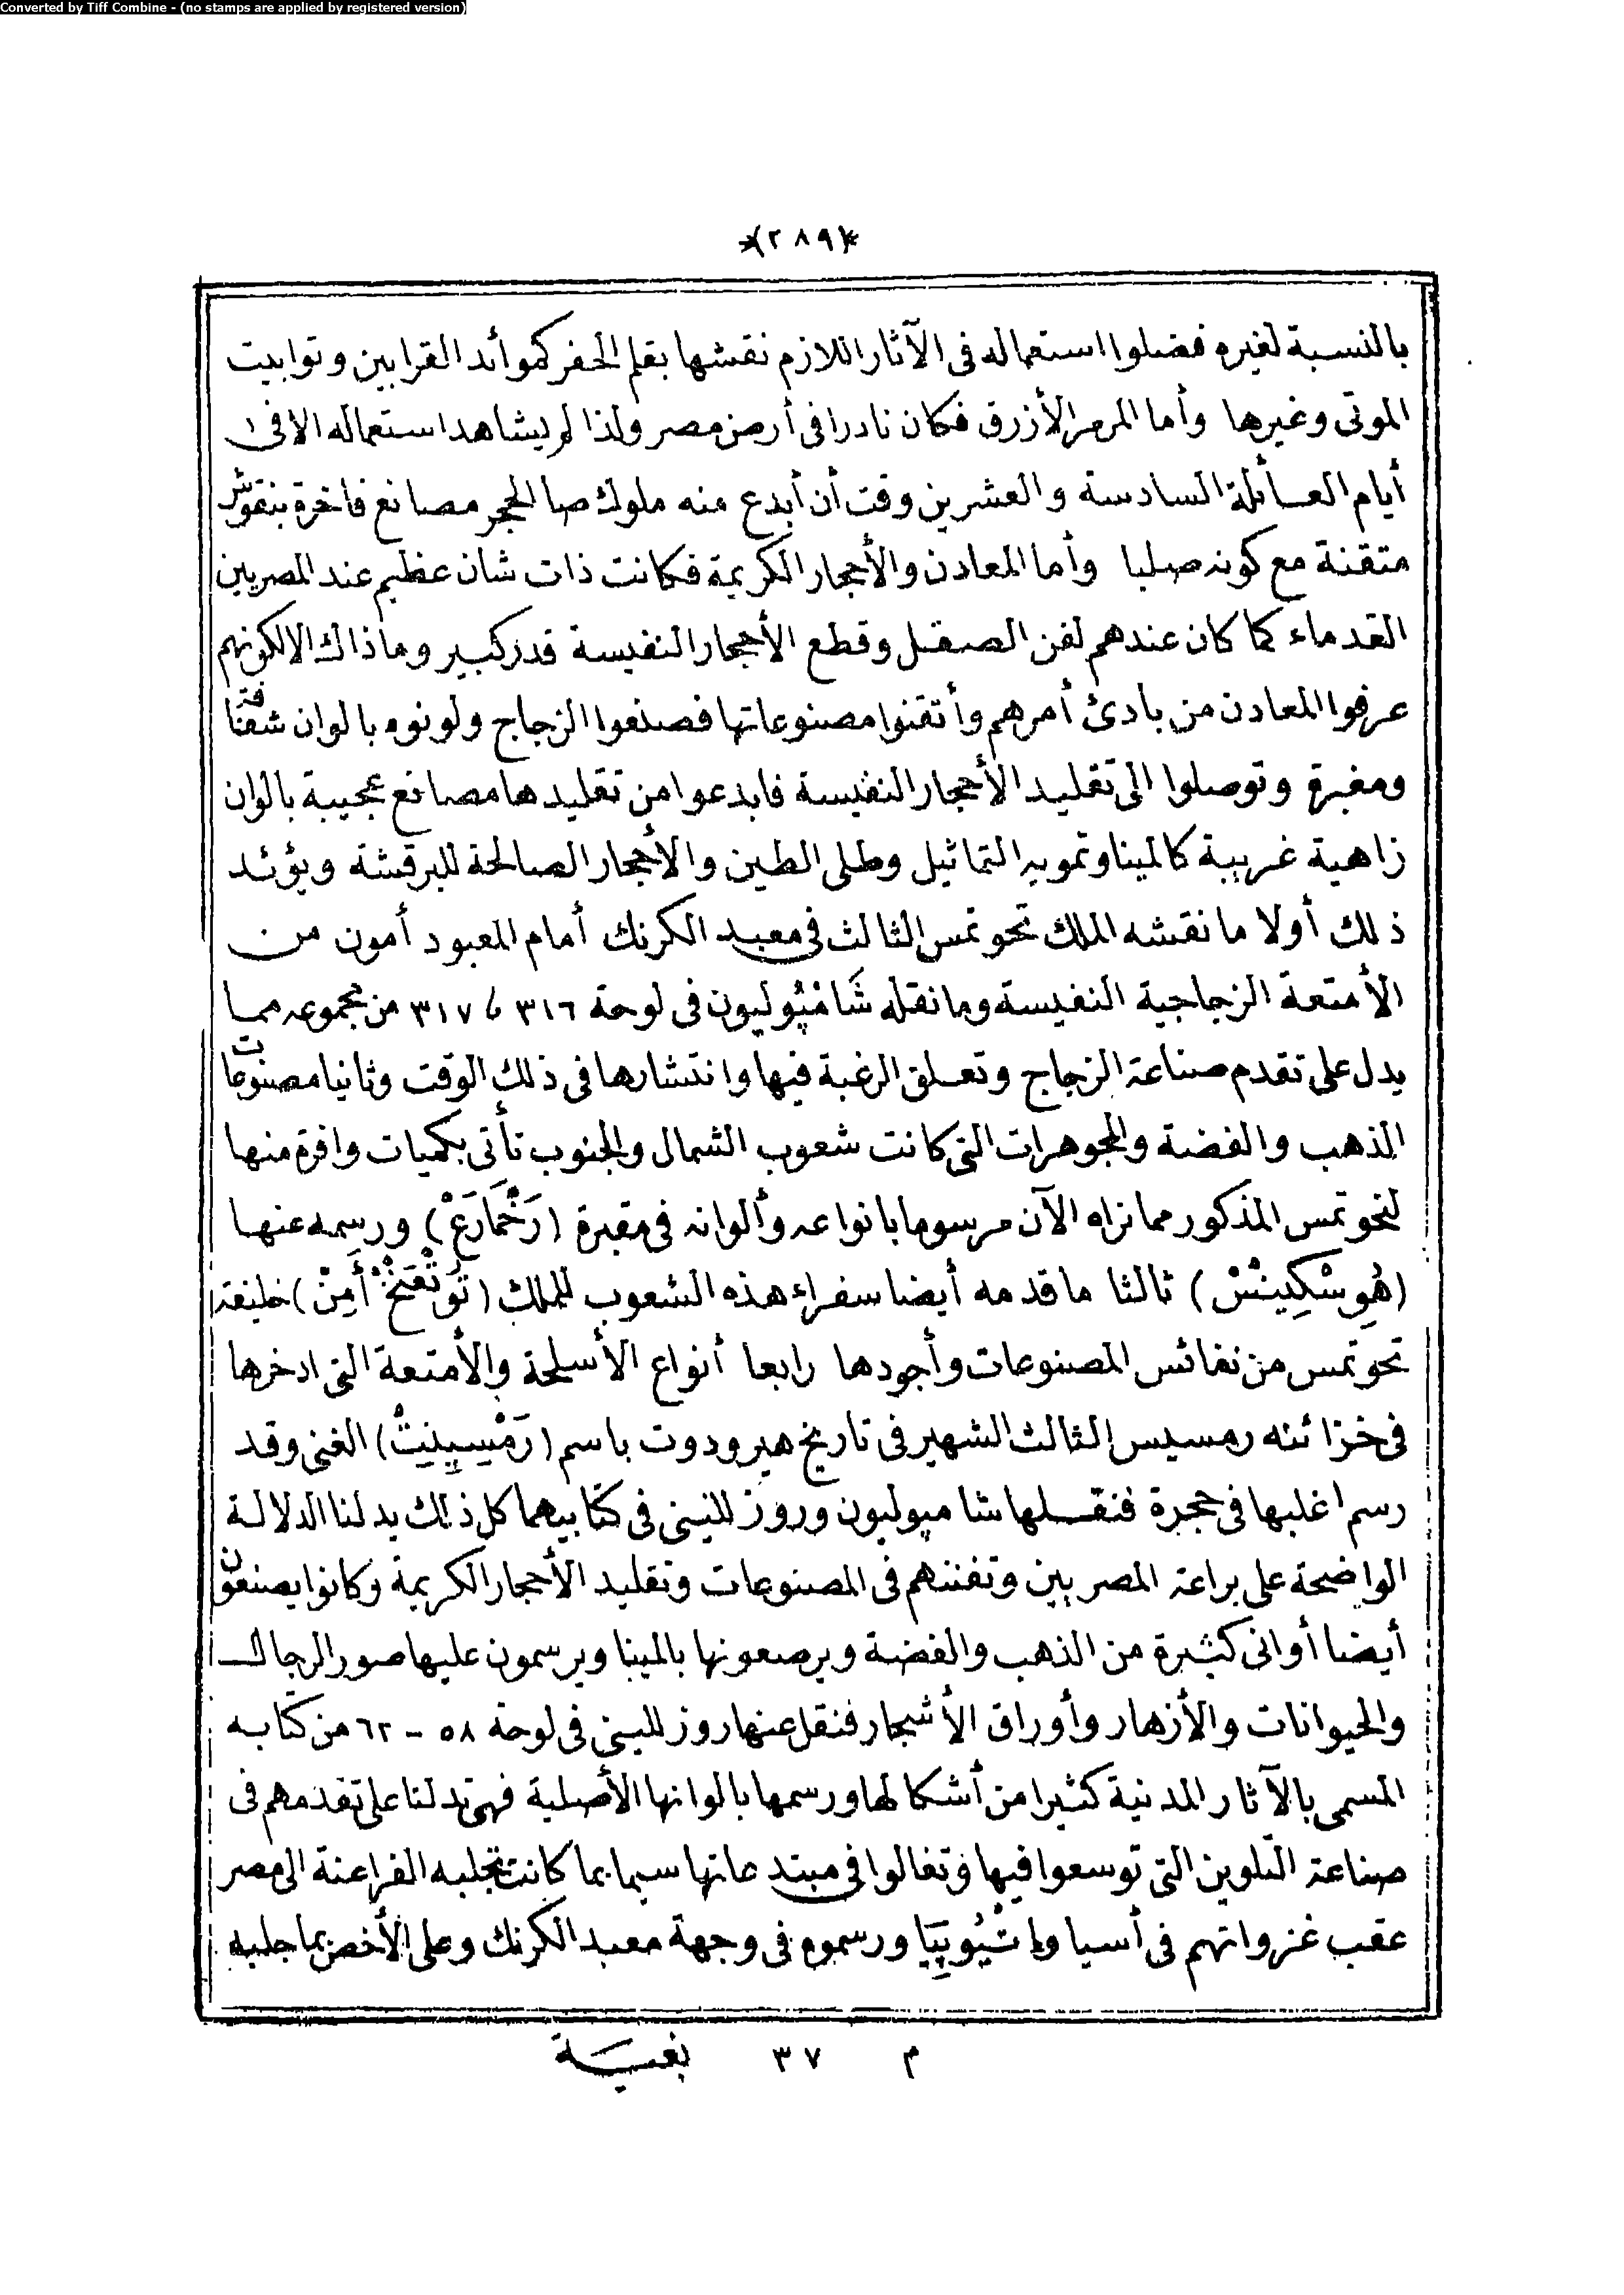 Converted by Tiff Combine - (no stamps are applied by registered version)
*(٢٨٩)*
بالنسبة لغيره فضلوا استعماله فى الآثار اللازم نقشها بقلم الحفر كموائد القرابين وتوابيت
الموتى وغيرها وأما المرمر الأزرق فكان نادرا فى أرض مصر ولذا لم يشاهد استعماله الا فى
أيام العائلة السادسة والعشرين وقت أن أبدع منه ملوك صا الحجر مصانع فاخرة بنقوش
متقنة مع كونه صلبا وأما المعادن والأحجار الكريمة فكانت ذات شان عظيم عند المصريين
القدماء كما كان عندهم لفن الصقل وقطع الأحجار النفيسة قدر كبير وما ذاك الا لكونهم
عرفوا المعادن من بادئ أمرهم وأتقنوا مصنوعاتها فصنعوا الزجاج ولونوه بالوان شفافة
ومغبرة وتوصلوا الى تقليد الأحجار النفيسة فابدعوا من تقليدها مصانع عجيبة بالوان
زاهية غريبة كالمينا وتمويه التماثيل وطلى الطين والأحجار الصالحة للبرقشة ويؤيد
ذلك أولا ما نقشه الملك تحوتمس الثالث فى معبد الكرنك أمام المعبود أمون من
الأمتعة الزجاجية النفيسة وما نقله شَامْپُوليون فى لوحة ٣١٦ ، ٣١٧ من مجموعه مما
يدل على تقدم صناعة الزجاج وتعلق الرغبة فيها وانتشارها فى ذلك الوقت وثانيا مصنوعات
الذهب والفضة والمجوهرات التى كانت شعوب الشمال والجنوب تأتى بكميات وافرة منها
لتحوتمس المذكور مما نراه الآن مرسوما بانواعه وألوانه فى مقبرة (رَخْمَارَعْ) ورسمه عنها
(هُوِسْكِينْسْ) ثالثا ما قدمه أيضا سفراء هذه الشعوب للملك (تُوتْعَنْخْ أَمِنْ) خليفة
تحوتمس من نفائس المصنوعات وأجودها رابعا أنواع الأسلحة والأمتعة التى ادخرها
فى خزائنه رمسيس الثالث الشهير فى تاريخ هيرودوت باسم (رَمْسِپِنِيتْ) الغنى وقد
رسم اغلبها فى حجرة فنقلها شامپوليون وروزللينى فى كتابيهما كل ذلك يدلنا الدلالة
الواضحة على براعة المصريين وتفننهم فى المصنوعات وتقليد الأحجار الكريمة وكانوا يصنعون
أيضا أوانى كثيرة من الذهب والفضة ويرصعونها بالمينا ويرسمون عليها صور الرجال
والحيوانات والأزهار وأوراق الأشجار فنقل عنها روزللينى فى لوحة ٥٨ - ٦٢ من كتابه
المسمى بالآثار المدنية كثيرا من أشكالها ورسمها بالوانها الأصلية فهى تدلنا على تقدمهم فى
صناعة التلوين التى توسعوا فيها وتغالوا فى مبتدعاتها سيما بما كانت تجلبه الفراعنة الى مصر
عقب غزواتهم فى أسيا واتْيُوپِيَا ورسموه فى وجهة معبد الكرنك وعلى الأخص بما جلبه
م ٣٧ بغية